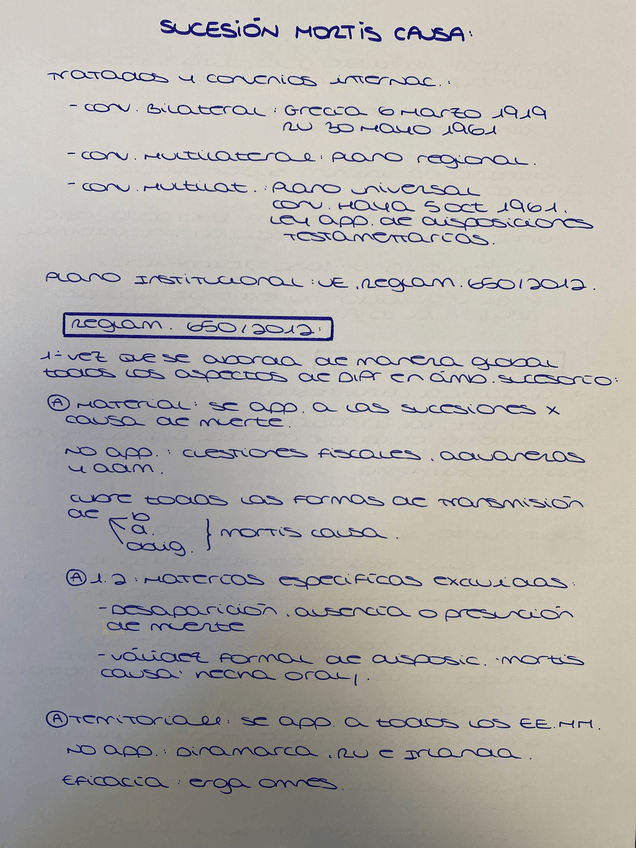 SUCESIÓN MORTIS CAUSA:
TRATADOS Y CONVENIOS INTERNAC.:
- CONV. BILATERAL: GRECIA 6 MARZO 1919
RU 30 MAYO 1961
- CONV. MULTILATERAL: PLANO REGIONAL.
- CONV. MULTILAT.: PLANO UNIVERSAL
CONV. HAYA 5 OCT 1961.
LEY APP. DE DISPOSICIONES
TESTAMENTARIAS.
PLANO INSTITUCIONAL: UE, REGLAM. 650/2012.
REGLAM. 650/2012:
1ª VEZ QUE SE ABORDA DE MANERA GLOBAL
TODOS LOS ASPECTOS DE DIPr EN ÁMB. SUCESORIO:
Ⓐ MATERIAL: SE APP. A LAS SUCESIONES X
CAUSA DE MUERTE.
NO APP.: CUESTIONES FISCALES, ADUANERAS
Y ADM.
CUBRE TODAS LAS FORMAS DE TRANSMISIÓN
DE b
d. } MORTIS CAUSA.
oblig.
Ⓐ 1.2: MATERIAS ESPECÍFICAS EXCLUIDAS:
- DESAPARICIÓN, AUSENCIA O PRESUNCIÓN
DE MUERTE
- VÁLIDEZ FORMAL DE DISPOSIC. "MORTIS
CAUSA" HECHA ORAL/.
Ⓐ TERRITORIAL: SE APP. A TODOS LOS EE.MM.
NO APP.: DINAMARCA, RU E IRLANDA.
EFICACIA: erga omnes.